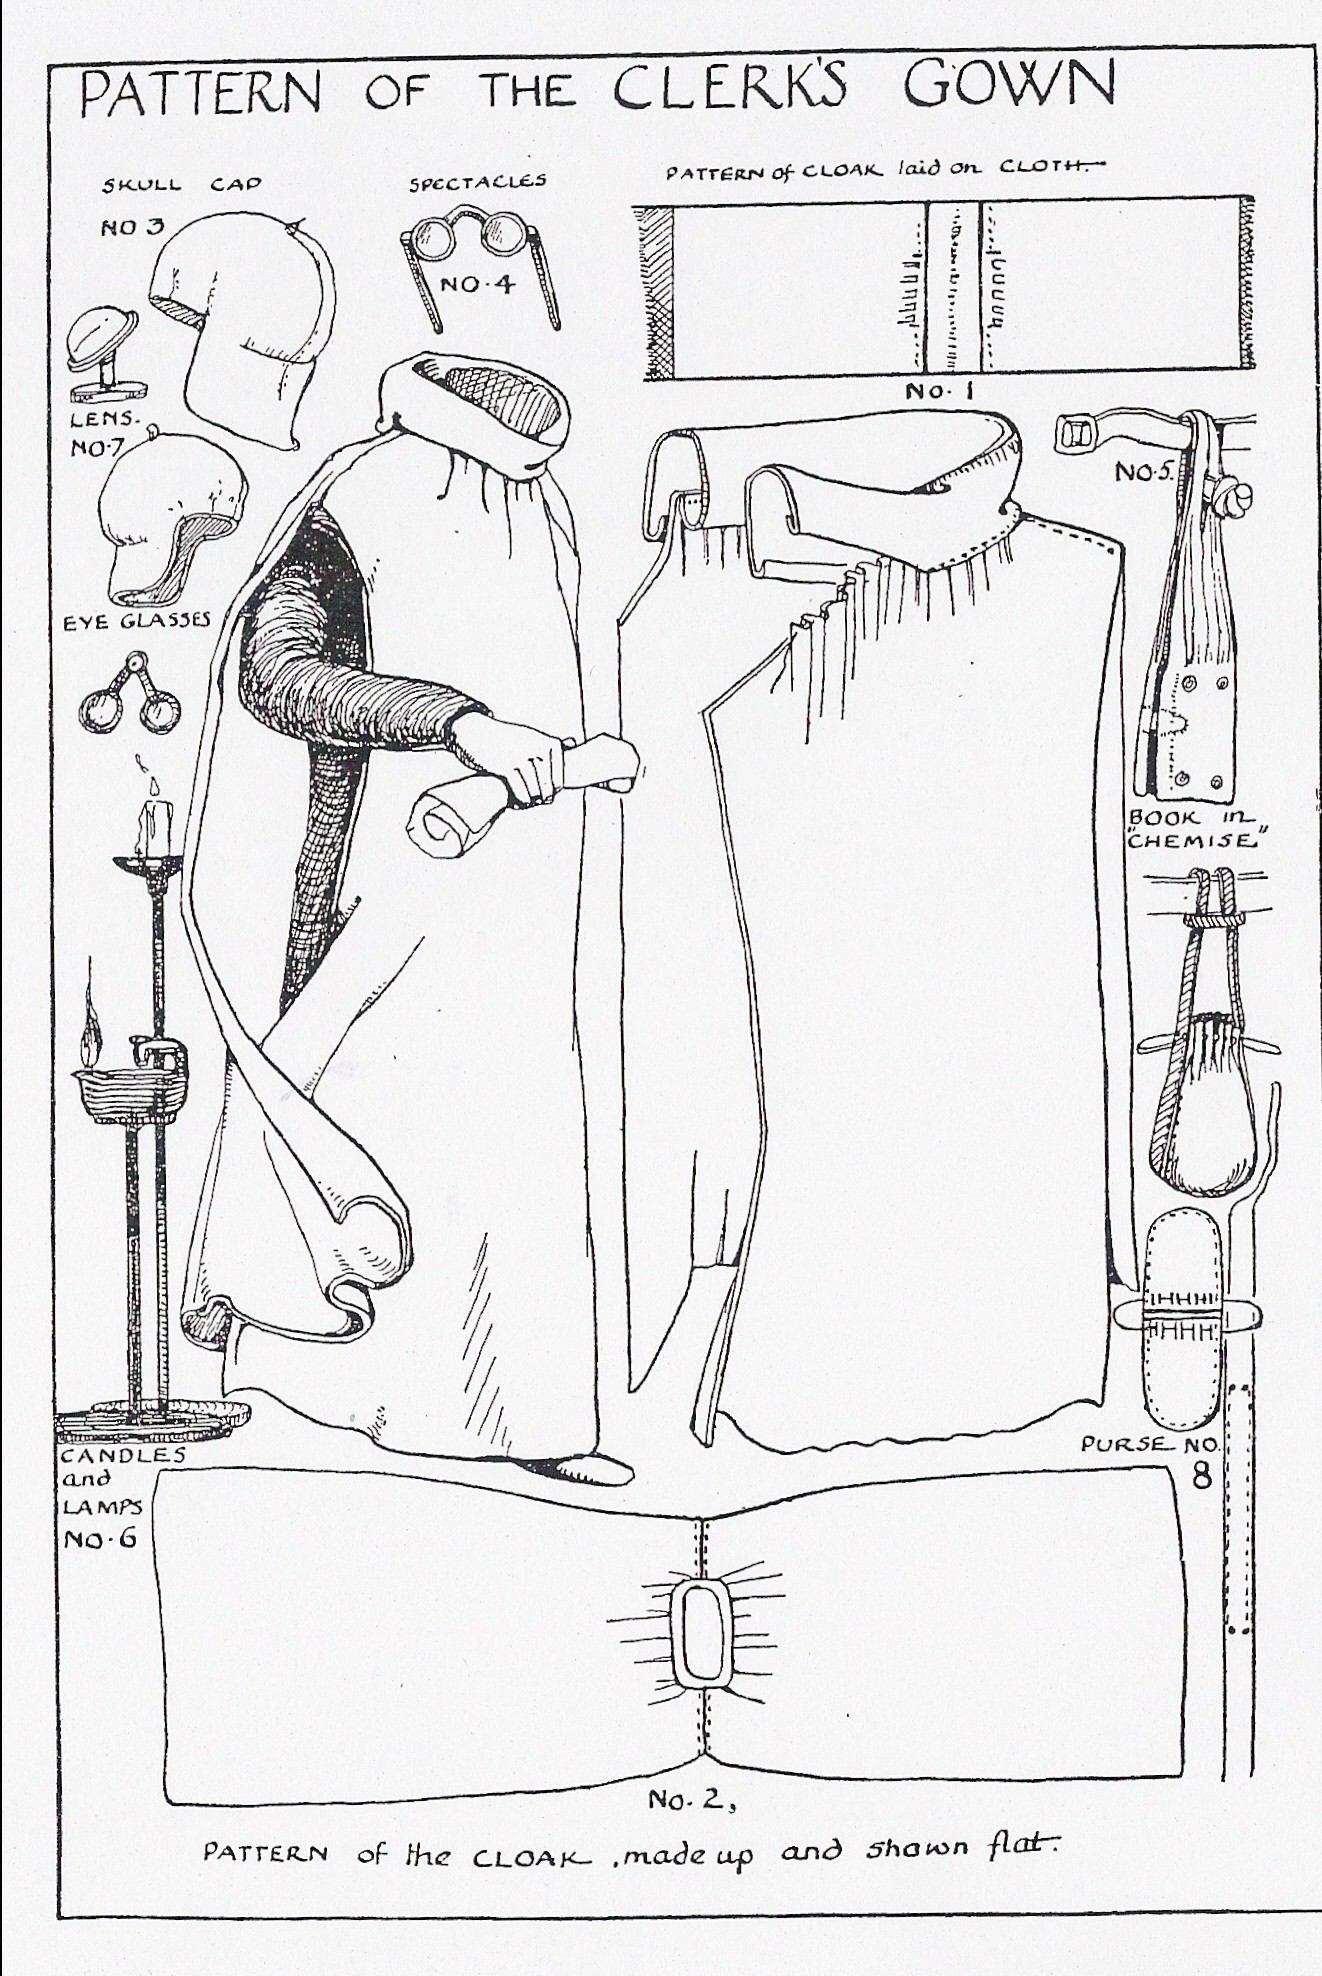 PATTERN OF THE CLERK'S GOWN
SKULL CAP
NO 3
SPECTACLES
NO·4
PATTERN of CLOAK laid on CLOTH.
No. 1
LENS.
NO·7
NO·5.
EYE GLASSES
BOOK in
"CHEMISE"
CANDLES
and
LAMPS
NO·6
PURSE NO.
8
No. 2,
PATTERN of the CLOAK .made up and shown flat.